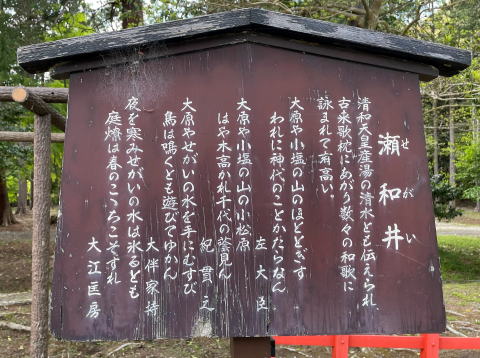 瀬和井
せがい
清和天皇産湯の清水とも伝えられ
古来歌枕にあがう数々の和歌に
詠まれて有高い。
大原や小塩の山のほどとぎす
われに神代のことかたらなん
左大臣
大原や小塩の山の小松原
はや木高かれ千代の蔭見ん
紀貫之
大原やせがいの水を手にむすび
鳥は鳴くとも遊びてゆかん
大伴家持
夜を寒みせがいの水は氷るとも
庭燎は春のこゝろこそすれ
大江匡房